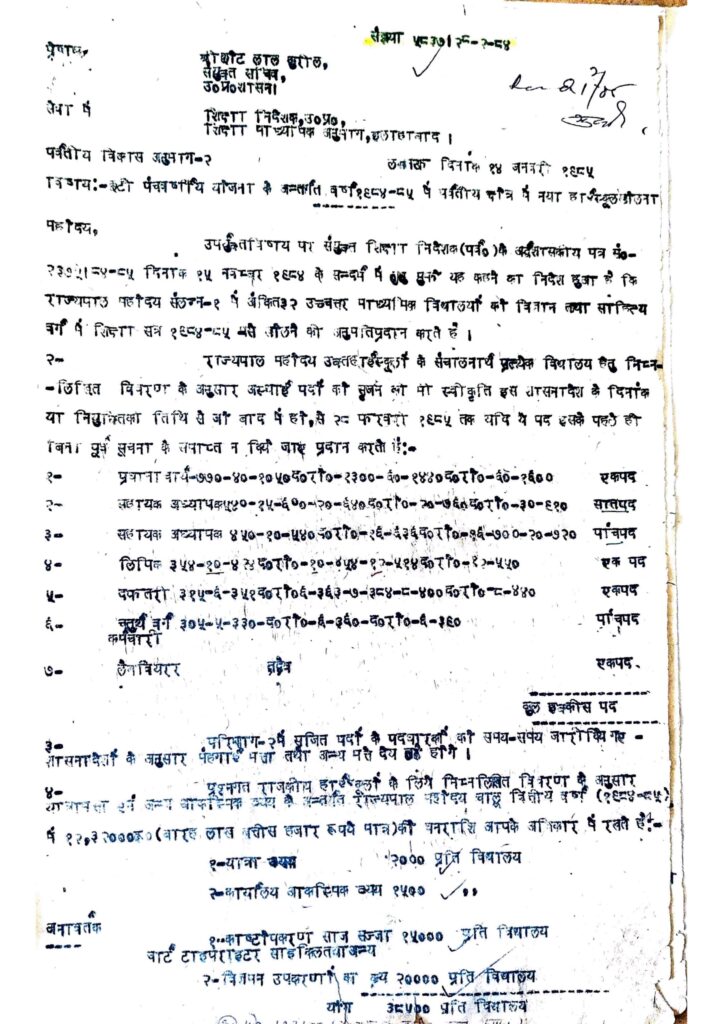 संख्या ५८३७/२८-२-८४
प्रेषक,
लाल
संयुक्त सचिव,
उ०प्र०शासन।
सेवा में
शिक्षा निदेशक,उ०प्र०,
शिक्षा माध्यमिक अनुभाग,इलाहाबाद ।
पर्वतीय विकास अनुभाग-२ लखनऊ दिनांक १४ जनवरी १९८५
विषय:- पंचवर्षीय योजना के अन्तर्गत वर्ष१९८४-८५ में पर्वतीय क्षेत्र में नया हाईस्कूल खोलना
महोदय,
उपर्युक्तविषय पर संयुक्त शिक्षा निदेशक(पर्व०)के अर्द्धशासकीय पत्र सं०-
दिनांक १५ नवम्बर १९८४ के सन्दर्भ में मुझे यह कहने का निदेश हुआ है कि
राज्यपाल महोदय संलग्न-१ में अंकित३२ उच्चत्तर माध्यमिक विद्यालयों को विज्ञान तथा साहित्यि
वर्ग में शिक्षा सत्र १९८४-८५ से खोलने की अनुमतिप्रदान करते हैं ।
२- राज्यपाल महोदय उक्तहाईस्कूलों के संचालनार्थ प्रत्येक विद्यालय हेतु निम्न-
-लिखित विवरण के अनुसार अस्थाई पदों को सृजन की भी स्वीकृति इस शासनादेश के दिनांक
या नियुक्तिकी तिथि से जो बाद में हो,से २८ फरवरी १९८५ तक यदि ये पद इसके पहले ही
बिना पूर्व सूचना के समाप्त न किये जाए प्रदान करते हैं:-
१- प्रधानाचार्य-७७०-४०-१०५०द०रो०-१३००-६०-१४४०द०रो०-६०-१६०० एकपद
२- सहायक अध्यापक५४०-१५-६००-२०-६४०द०रो०-२०-७६०द०रो०-३०-९१० सातपद
३- सहायक अध्यापक ४५०-१०-५४०द०रो०-१६-६३६द०रो०-१६-७००-२०-७२० पांचपद
४- लिपिक ३५४-१०- द०रो०-१०-४५४-१२-५१४द०रो०-१२-५५० एक पद
५- दफ्तरी ३१५-६-३५१द०रो०६-३६३-७-३८४-८-४००द०रो०-८-४४० एकपद
६- चतुर्थ वर्ग ३०५-५-३३०-द०रो०-६-३६०-द०रो०-६-३९० पांचपद
कर्मचारी
७- तदैव एकपद
कुल इक्कीस पद
३- में सृजित पदों के पदधारकों को समय-समय जारीकिये गए -
शासनादेशों के अनुसार मंहगाई भत्ता तथा अन्य भत्ते देय होंगे ।
४- प्रश्नगत राजकीय हाईस्कूलों के लिये निम्नलिखित विवरण के अनुसार
यात्राभत्ता एवं अन्य आकस्मिक व्यय के अन्तर्गत राज्यपाल महोदय चालू वित्तीय वर्ष (१९८४-८५)
में १२,३२०००रू०(बारह लाख बत्तीस हजार रूपये मात्र)की धनराशि आपके अधिकार में रखते हैं:-
१-यात्रा व्यय २००० प्रति विद्यालय
२-कार्यालय आकस्मिक व्यय १५०० ,,
अनावर्तक
१-काष्टोपकरण साज सज्जा १५००० प्रति विद्यालय
टाइपराइटर साइकिलतथाअन्य
२- उपकरणों का क्रय २०००० प्रति विद्यालय
योग ३८५०० प्रति विद्यालय